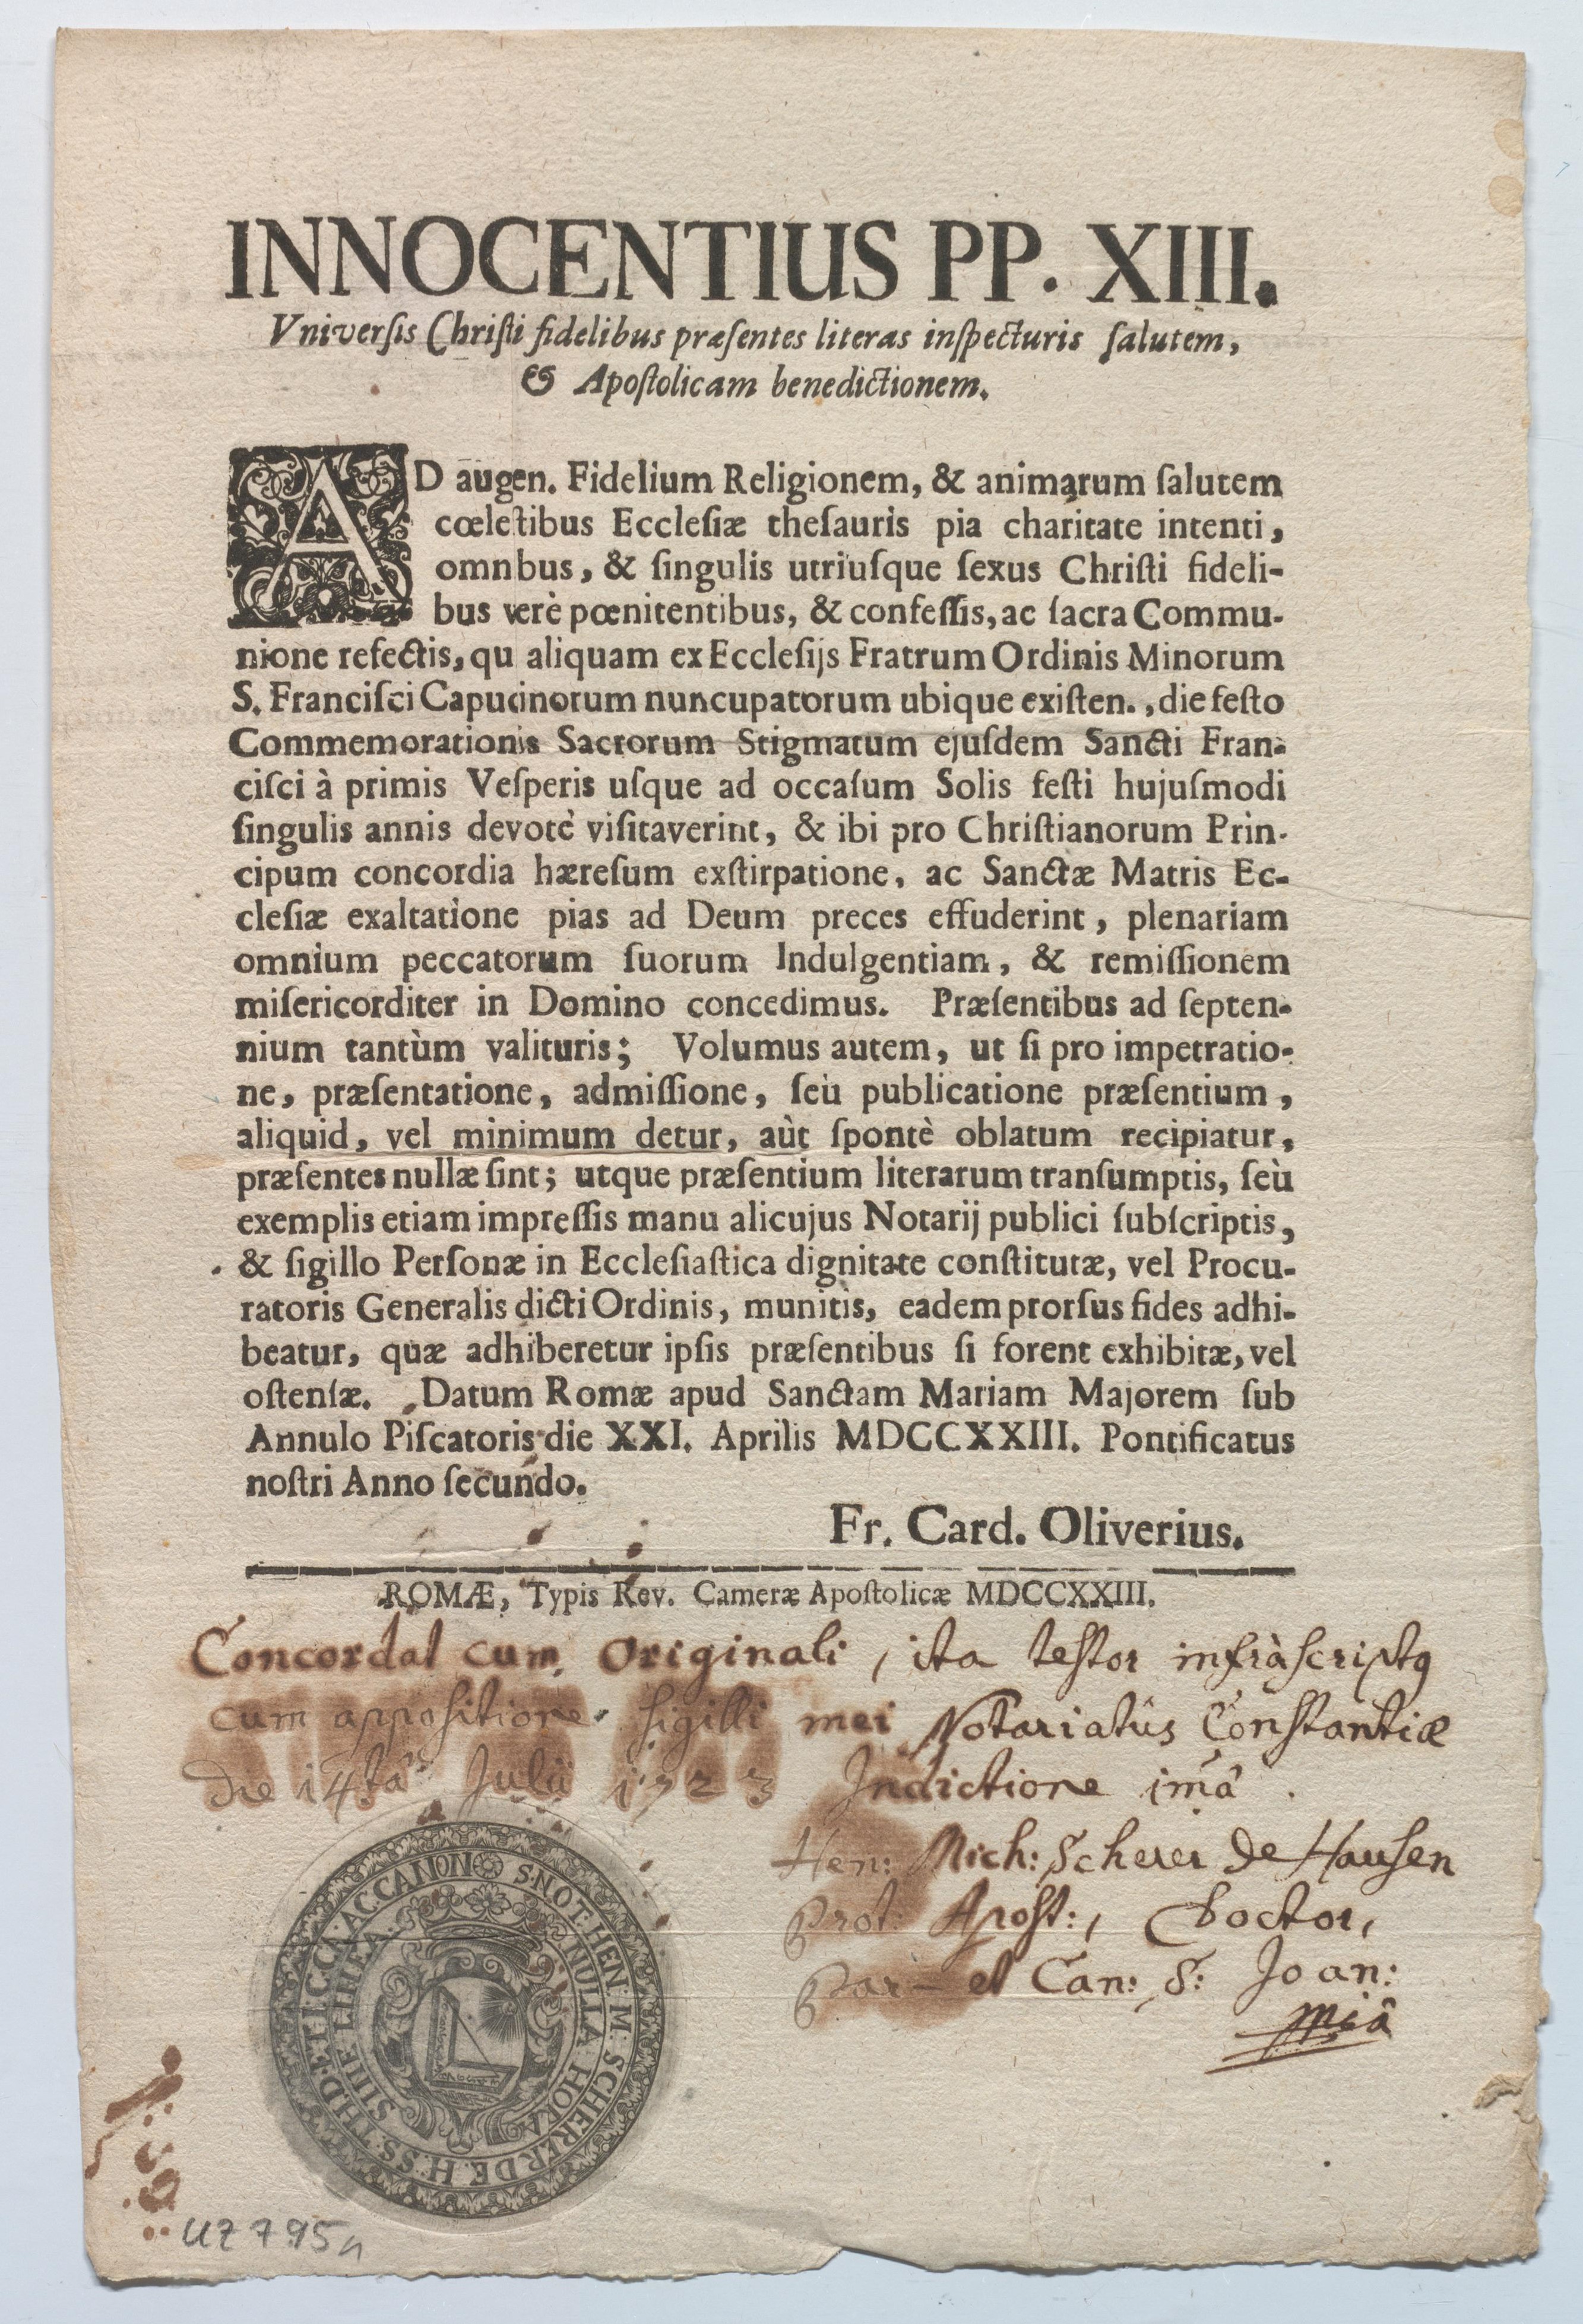 INNOCENTIUS PP. XIII.
Vniverſis Chriſti fidelibus præſentes literas inſpecturis ſalutem,
& Apoſtolicam benedictionem.
AD augen. Fidelium Religionem, & animarum ſalutem
cœleſtibus Eccleſiæ theſauris pia charitate intenti,
omnbus, & ſingulis utriuſque ſexus Chriſti fideli-
bus verè pœnitentibus, & confeſſis, ac ſacra Commu-
nione refectis, qu aliquam ex Eccleſijs Fratrum Ordinis Minorum
S. Franciſci Capucinorum nuncupatorum ubique exiſten., die feſto
Commemorationis Sacrorum Stigmatum ejuſdem Sancti Fran-
ciſci à primis Veſperis uſque ad occaſum Solis feſti hujuſmodi
ſingulis annis devotè viſitaverint, & ibi pro Chriſtianorum Prin-
cipum concordia hæreſum exſtirpatione, ac Sanctæ Matris Ec-
cleſiæ exaltatione pias ad Deum preces effuderint, plenariam
omnium peccatorum ſuorum Indulgentiam, & remiſſionem
miſericorditer in Domino concedimus. Præſentibus ad ſepten-
nium tantùm valituris; Volumus autem, ut ſi pro impetratio-
ne, præſentatione, admiſſione, ſeù publicatione præſentium,
aliquid, vel minimum detur, aùt ſpontè oblatum recipiatur,
præſentes nullæ ſint; utque præſentium literarum tranſumptis, ſeù
exemplis etiam impreſſis manu alicujus Notarij publici ſubſcriptis,
& ſigillo Perſonæ in Eccleſiaſtica dignitate conſtitutæ, vel Procu-
ratoris Generalis dicti Ordinis, munitis, eadem prorſus fides adhi-
beatur, quæ adhiberetur ipſis præſentibus ſi forent exhibitæ, vel
oſtenſæ. Datum Romæ apud Sanctam Mariam Majorem ſub
Annulo Piſcatoris die XXI. Aprilis MDCCXXIII. Pontificatus
noſtri Anno ſecundo.
Fr. Card. Oliverius.
ROMÆ, Typis Rev. Cameræ Apoſtolicæ MDCCXXIII.
Concordat cum Originali, ita testor infràscriptꝯ
cum appositione sigilli mei Notariatûs Constantiæ
die 14tâ Julii 1723 Indictione imâ.
Hen: Mich: Scherer de Hausen
Prot: Apost:, Doctor,
Par– et Can: S: Joan:
mia
S. NOT. HEN. M. SCHERER DE. H. SS. TH. D. E. T. I. C. CA. AC. CANON
NULLA HORA SINE LINEA
UZ 795a